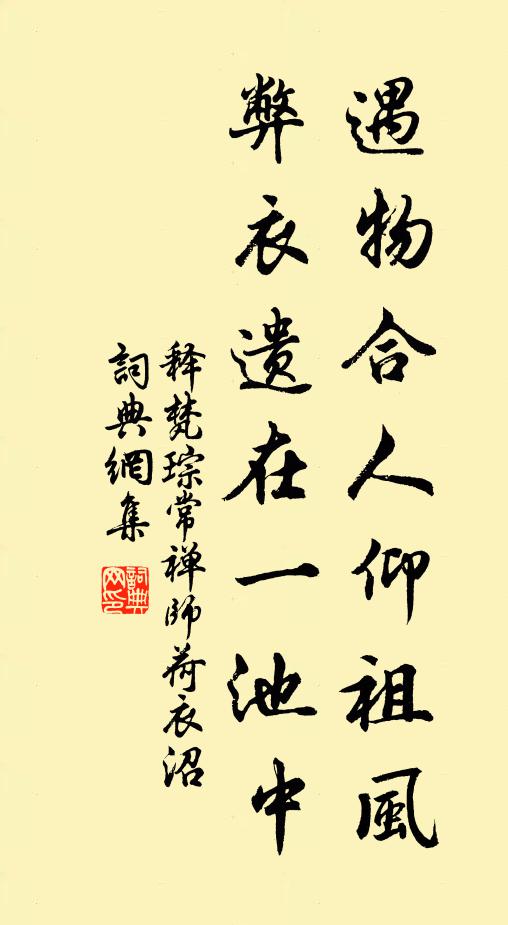 遇物合人仰祖風
弊衣遗在一池中
释梵琮常禅師荷衣沼
詞典網集
詞典
网印